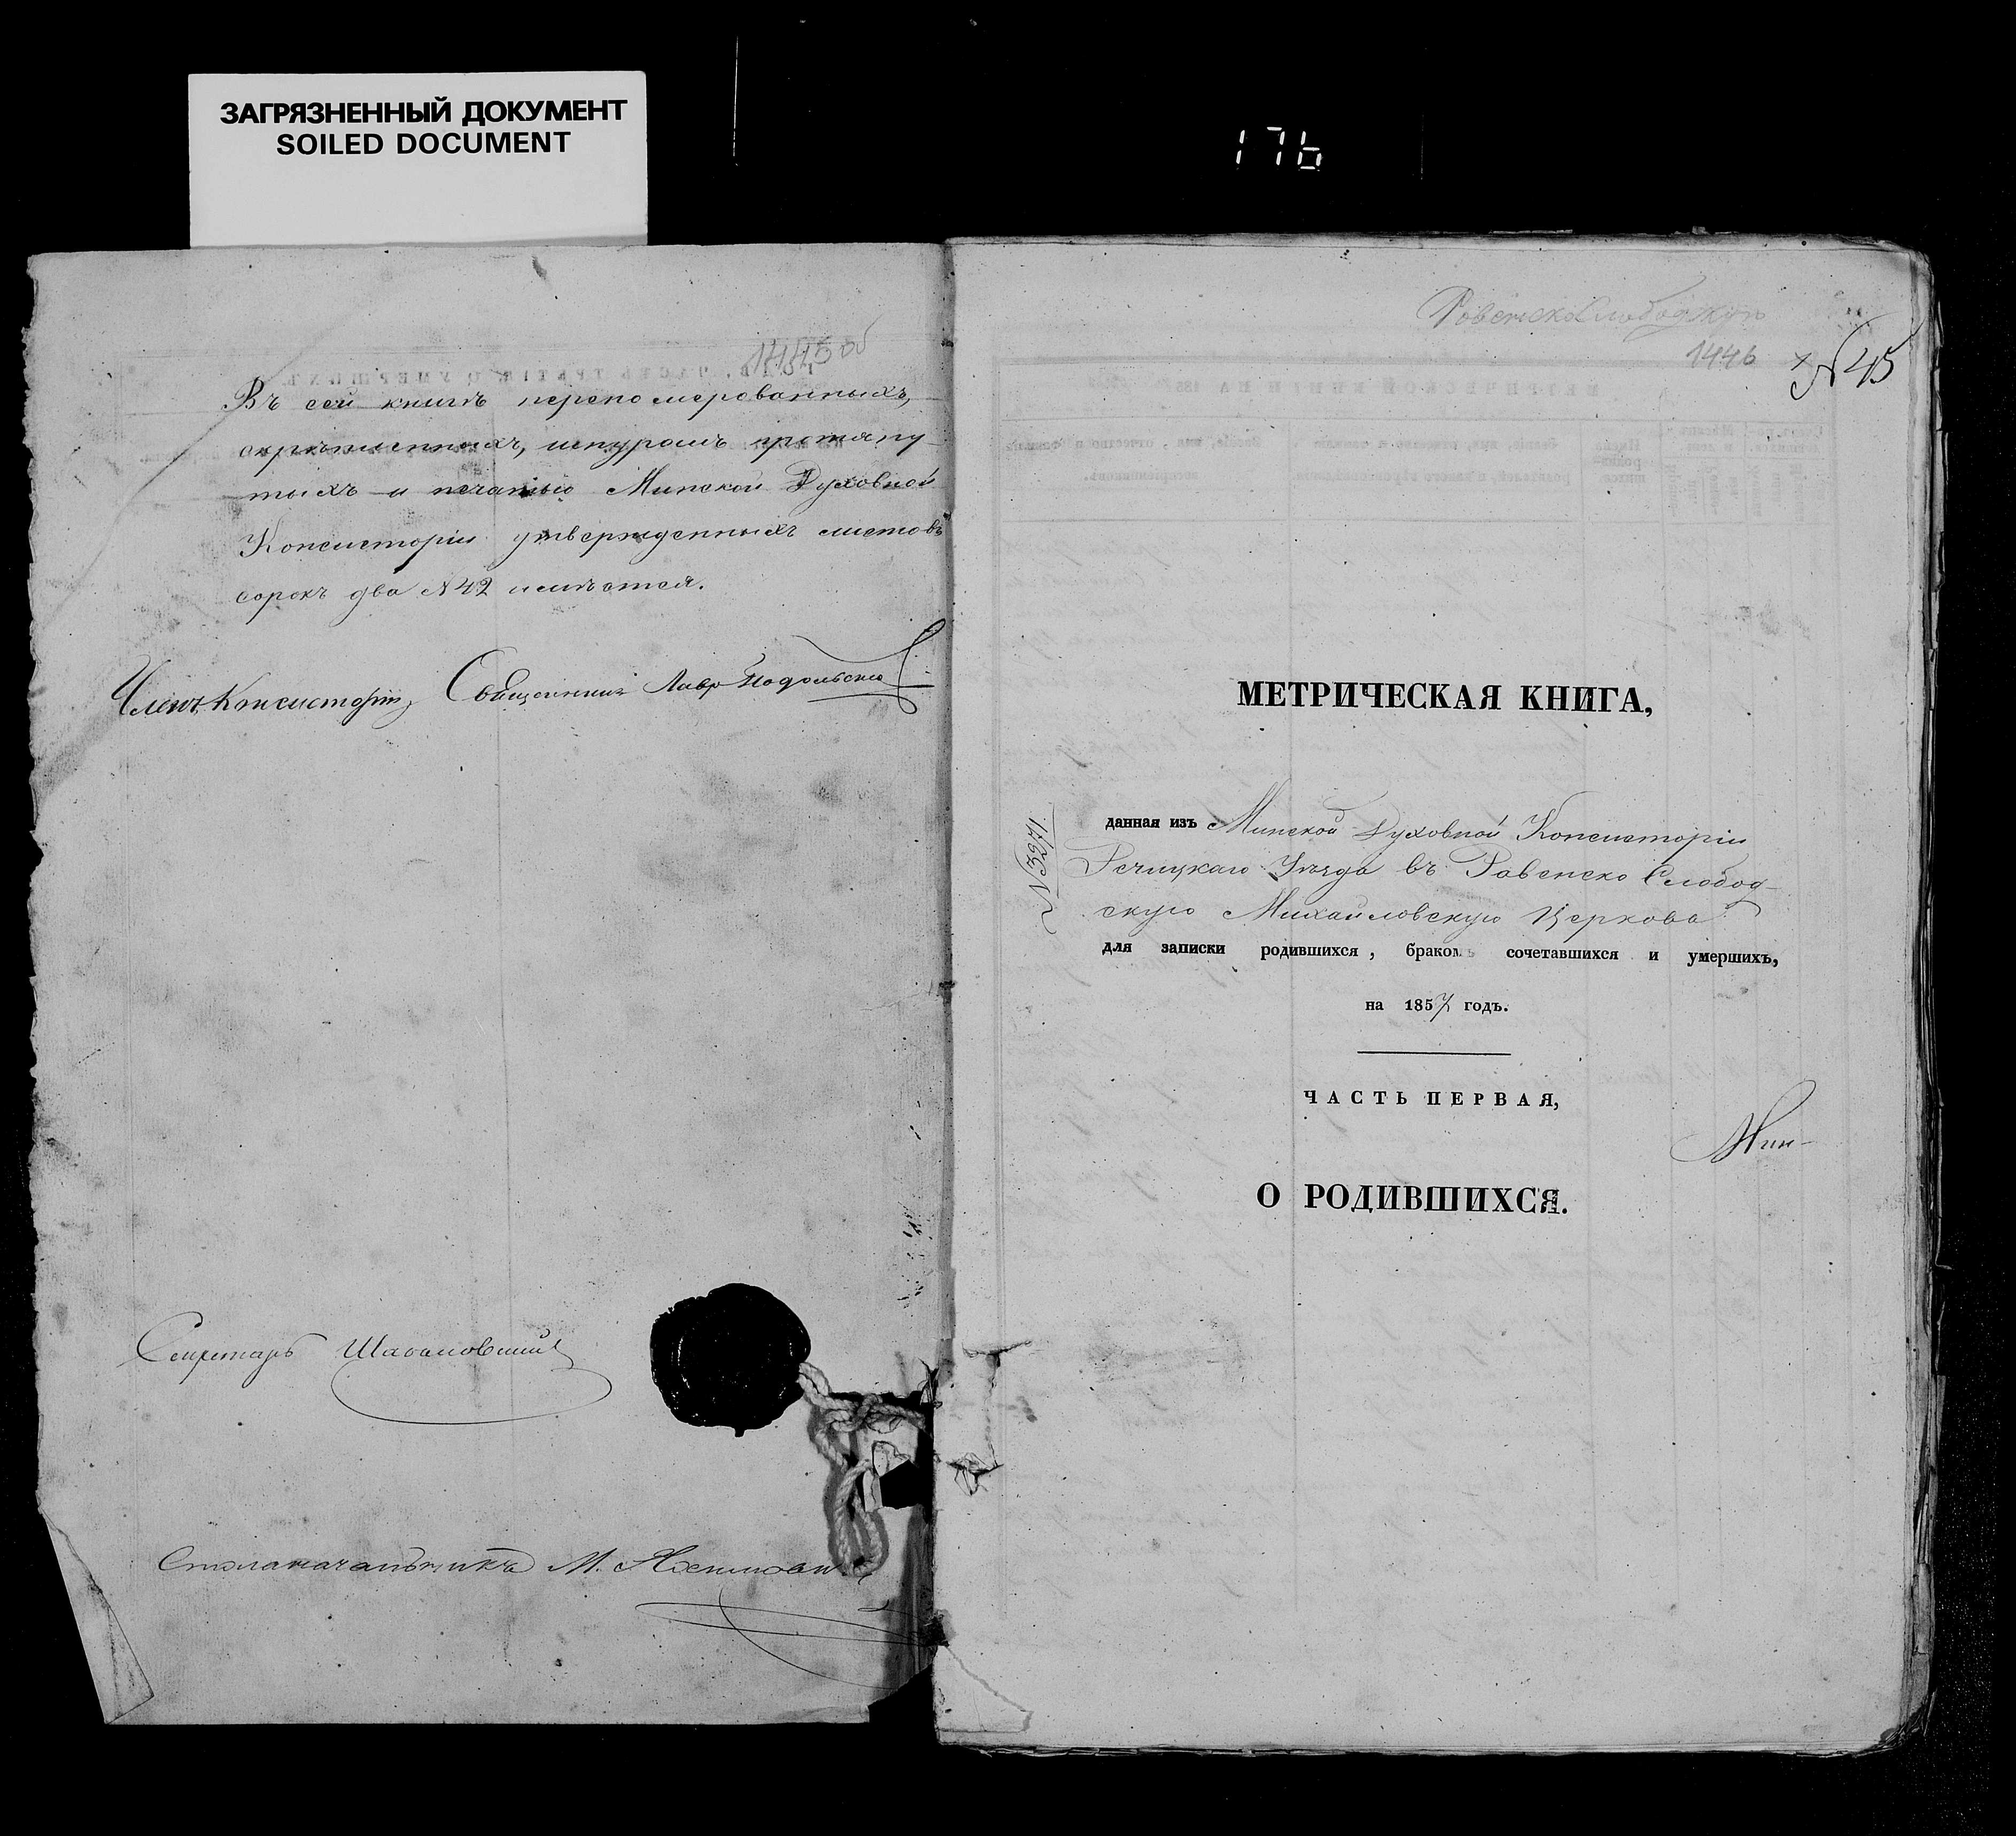 ЗАГРЯЗНЕННЫЙ ДОКУМЕНТ
SOILED DOCUMENT
176
1445 об
Въ сей книгѣ перепомерованныхъ,
скрѣпленныхъ, шнуромъ протяну-
тыхъ и печатью Минской Духовной
Консисторіи утвержденныхъ листовъ
сорокъ два №42 имѣется.
Членъ Консисторіи, Священникъ Лавр Подольскій
Секретарь
Столоначальникъ М.
Ровенско Слободской
1446
№ 45
МЕТРИЧЕСКАЯ КНИГА,
№3271.
данная изъ Минской Духовной Консисторіи
Речицкаго Уѣзда въ Ровенско Слобод-
скую Михайловскую Церковь
для записки родившихся, бракомъ сочетавшихся и умершихъ,
на 1857 годъ.
ЧАСТЬ ПЕРВАЯ,
Мин-
О РОДИВШИХСЯ.